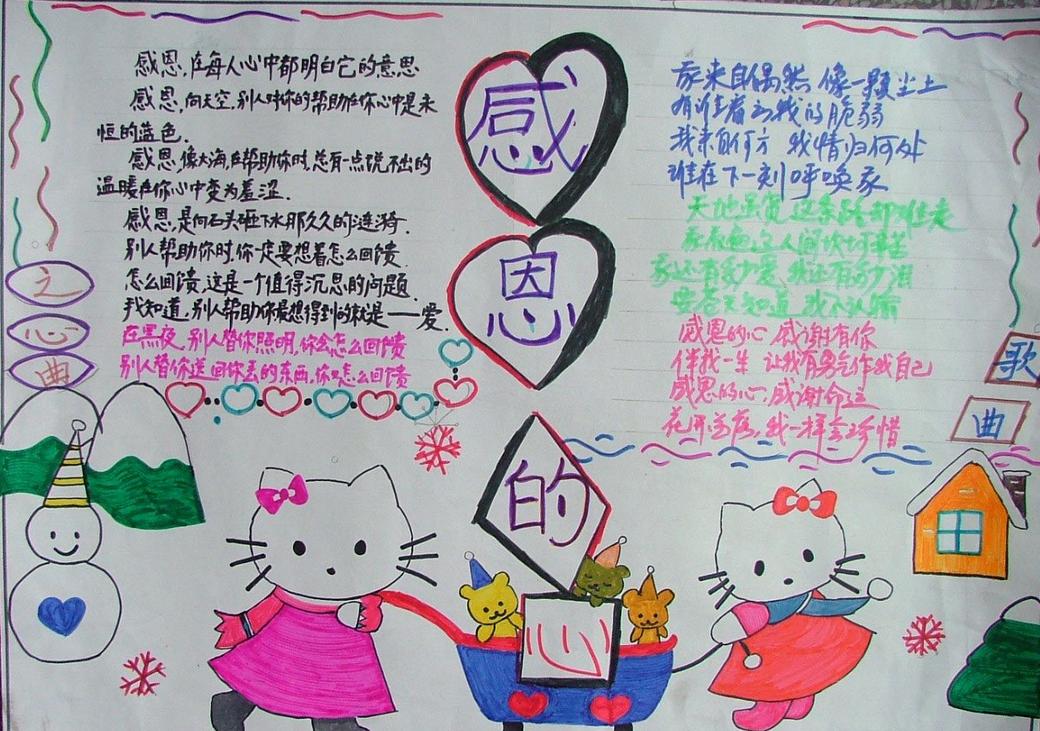 感恩,在每人心中都明白它的意思
感恩,向天空,别人对你的帮助在你心中是永
恒的蓝色.
感恩,像大海,在帮助你时,总有一点说不出的
温暖在你心中变为羞涩.
感恩,是向石头砸下水那久久的涟漪.
别人帮助你时,你一定要想着怎么回馈
怎么回馈,这是一个值得沉思的问题.
我知道,别人帮助你最想得到的就是——爱.
在黑夜,别人替你照明,你会怎么回馈
别人替你送回你丢的东西,你怎么回馈
之
心
曲
感
恩
的
心
我来自偶然 像一颗尘土
有谁看出我的脆弱
我来自何方 我情归何处
谁在下一刻呼唤我
天地虽宽 这条路却难走
我看遍这人间坎坷辛苦
我还有多少爱 我还有多少泪
要苍天知道 我不认输
感恩的心 感谢有你
伴我一生 让我有勇气作我自己
感恩的心,感谢命运
花开花落,我一样会珍惜
歌
曲